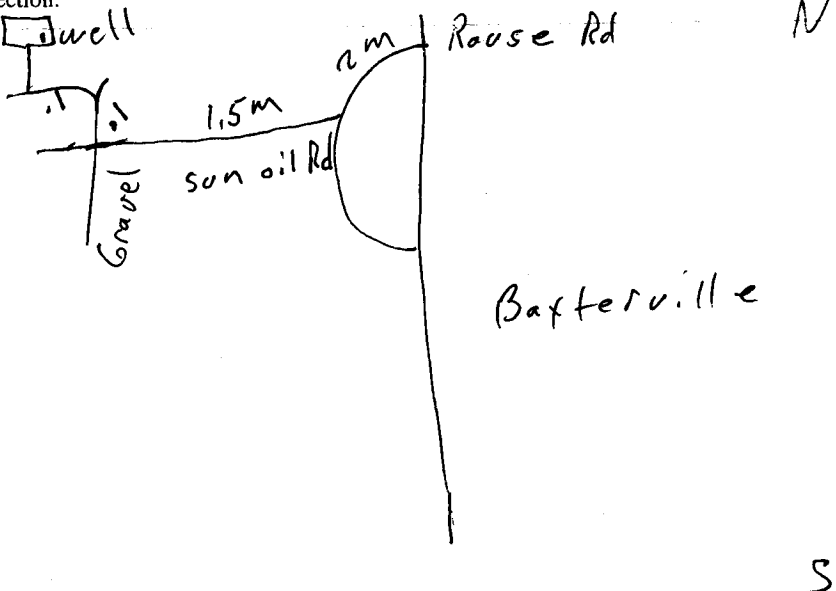 ection.
well
N
2m Rouse Rd
.1
.1
1.5m
sun oil Rd
Gravel
Baxterville
S